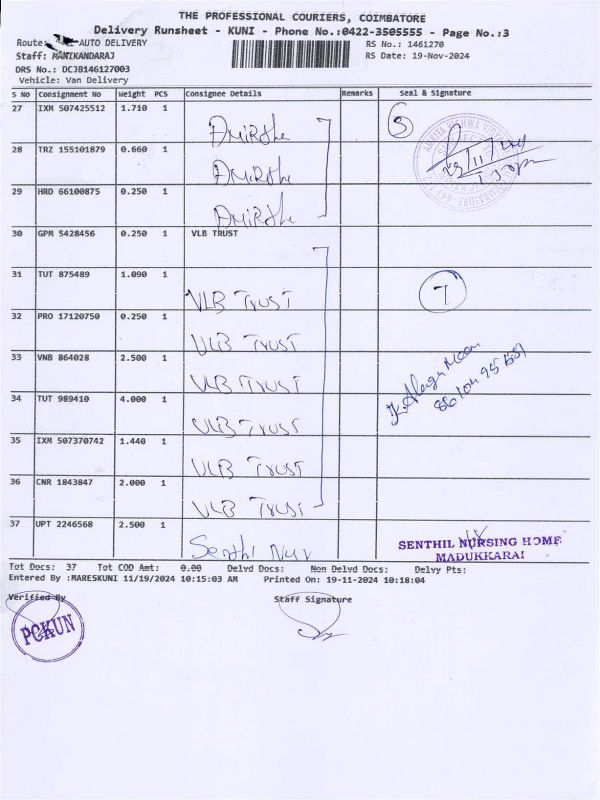 THE PROFESSIONAL COURIERS, COIMBATORE
Delivery Runsheet - KUNI - Phone No.:0422-3505555 - Page No.:3
Route: AUTO DELIVERY
RS No.: 1461270
Staff: MANIKANDARAJ
RS Date: 19-Nov-2024
DRS No.: DCJB146127003
Vehicle: Van Delivery
S No Consignment No Weight PCS Consignee Details Remarks Seal & Signature
27 IXM 507425512 1.710 1 Amirtha 3
28 TRZ 155101879 0.660 1 Amirtha
29 HRD 66100875 0.250 1 Amirtha
30 GPM 5428456 0.250 1 VLB TRUST
31 TUT 875489 1.090 1 VLB TRUST 7
32 PRO 17120750 0.250 1 VLB TRUST
33 VNB 864028 2.500 1 VLB TRUST
34 TUT 989410 4.000 1 VLB TRUST
35 IXM 507370742 1.440 1 VLB TRUST
36 CNR 1843847 2.000 1 VLB TRUST
37 UPT 2246568 2.500 1 Senthil Nur
SENTHIL NURSING HOME
MADUKKARAI
Tot Docs: 37 Tot COD Amt: 0.00 Delvd Docs: Non Delvd Docs: Delvy Pts:
Entered By :MARESKUNI 11/19/2024 10:15:03 AM Printed On: 19-11-2024 10:18:04
Verified By Staff Signature
PCKUN